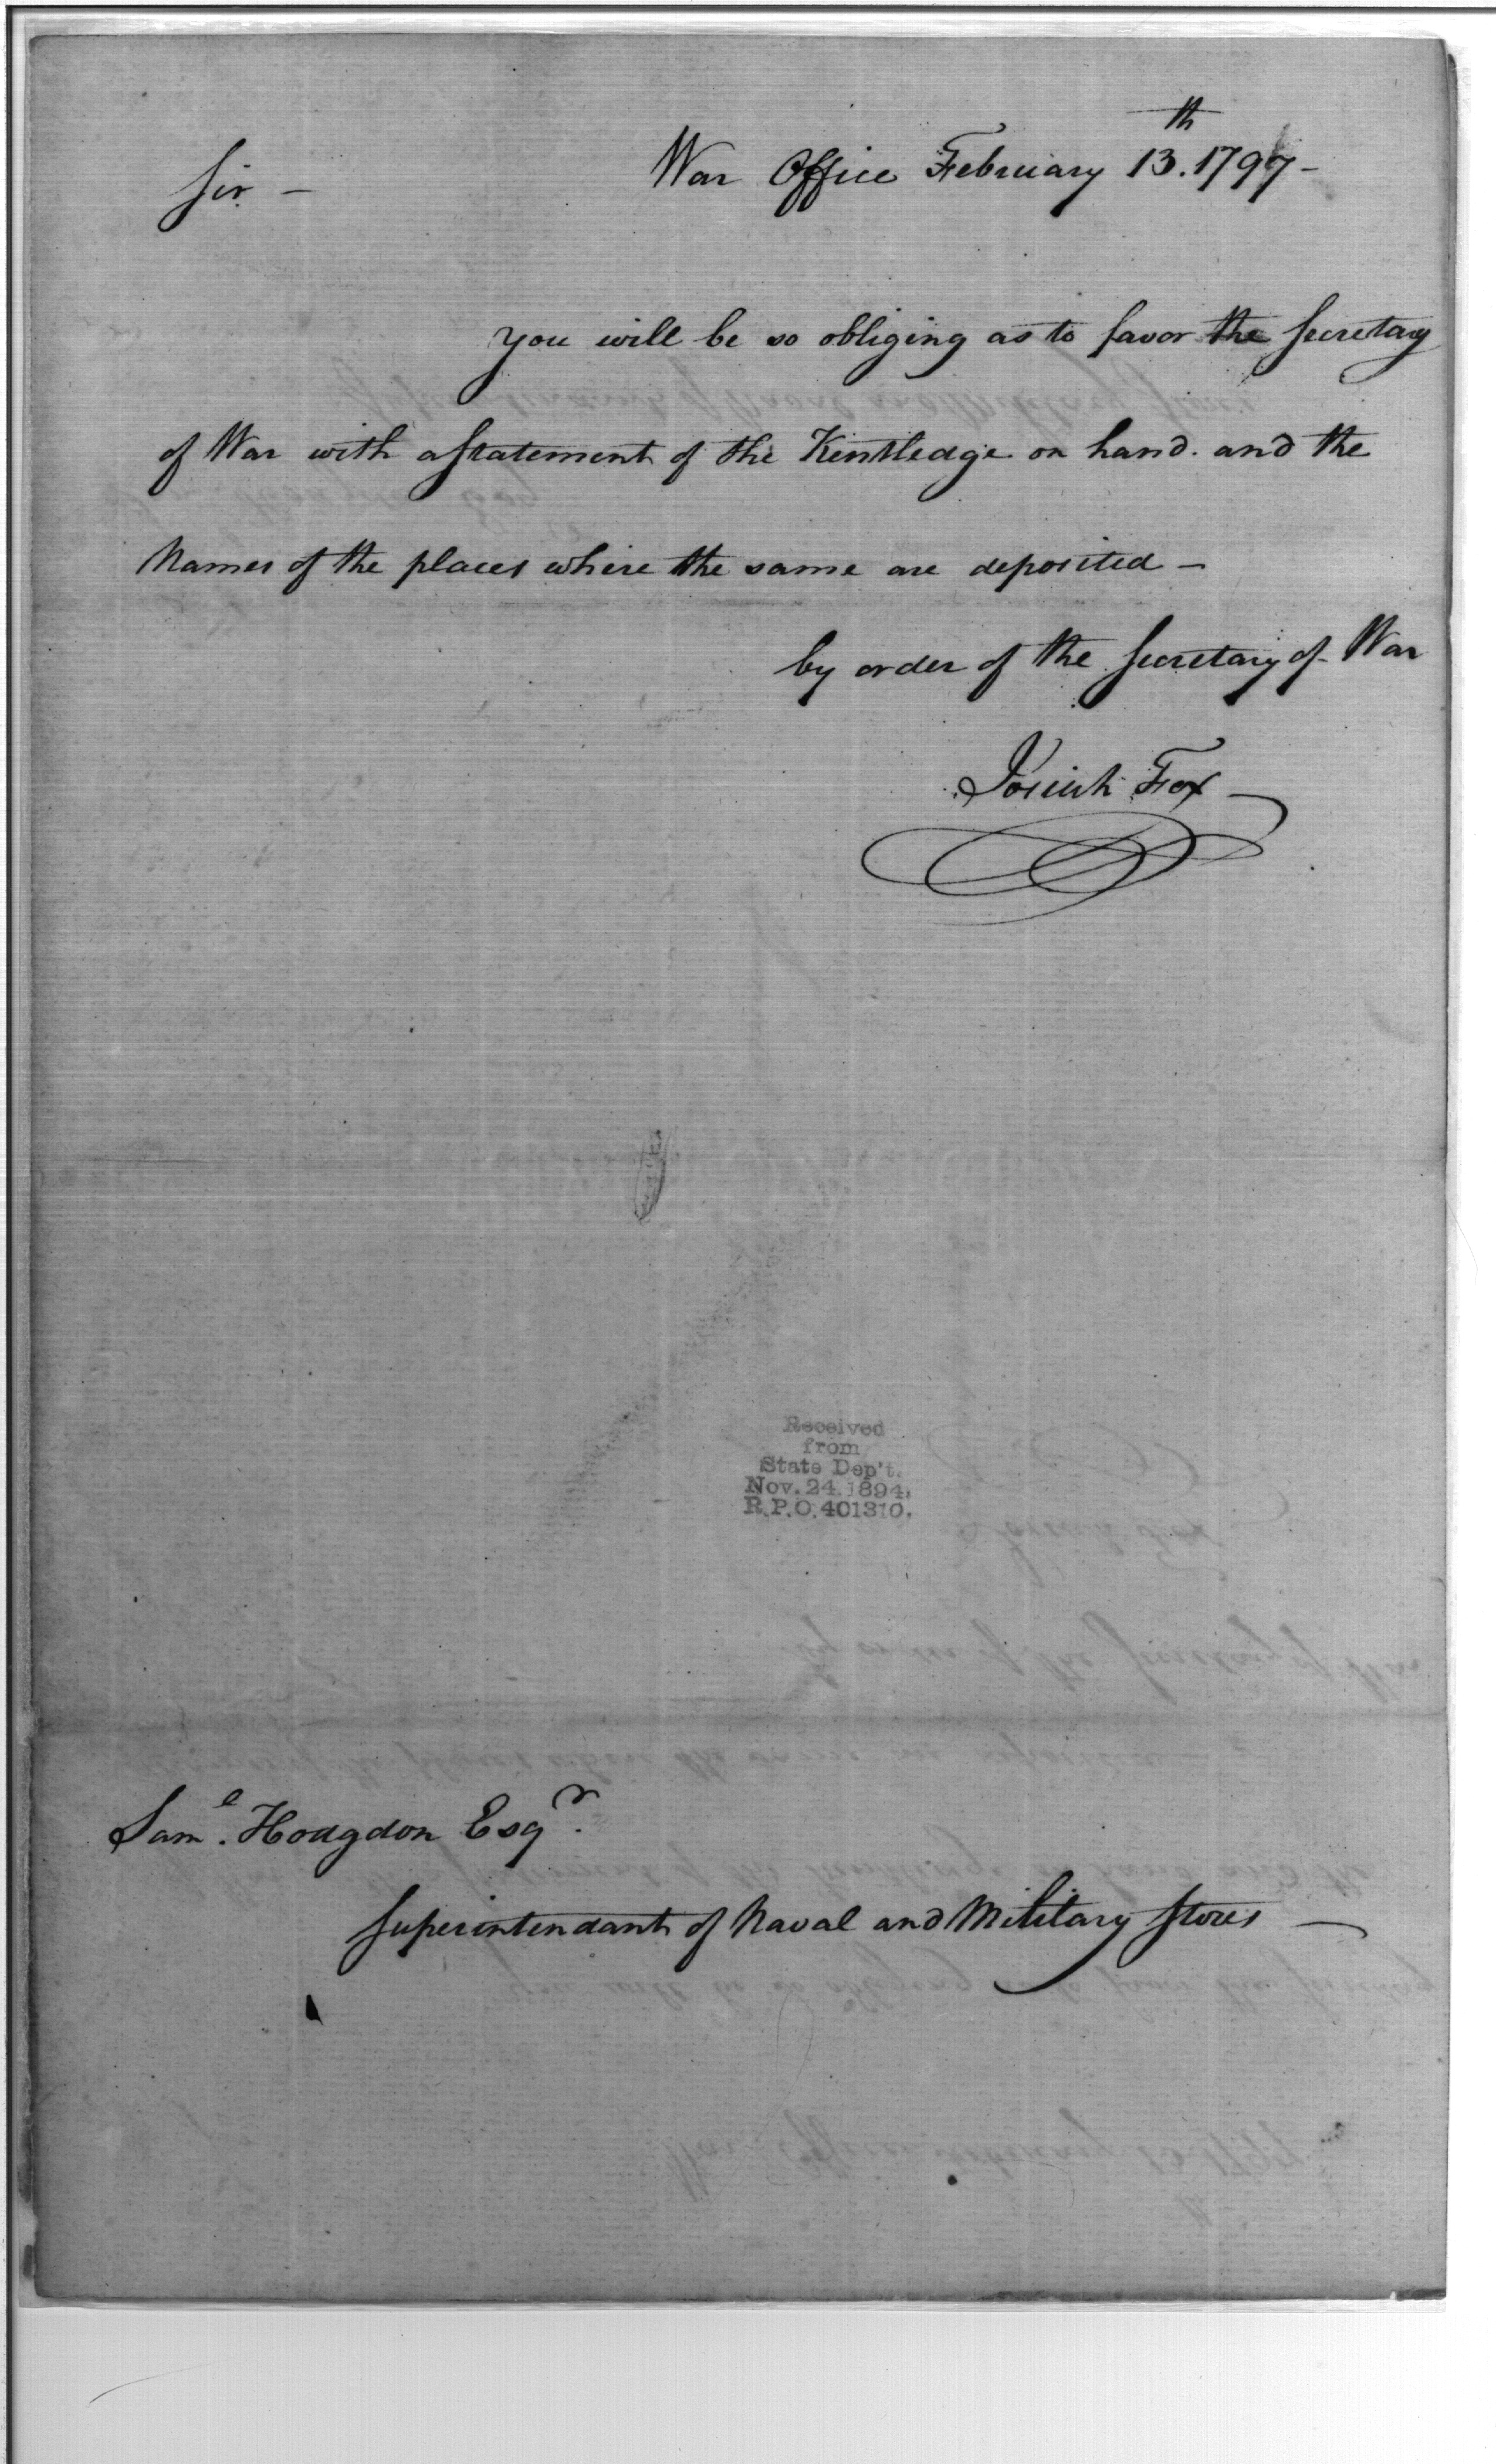 War Office February 13.th 1797 -
Sir -
you will be so obliging as to favor the Secretary
of War with a Statement of the Kentledge on hand. and the
Names of the places where the same are deposited -
by order of the Secretary of War
Josiah Fox -
Received
from
State Dep't.
Nov. 24 1894.
R.P.O. 401310.
Sam.l Hodgdon Esq.r
Superintendant of Naval and Military Stores -